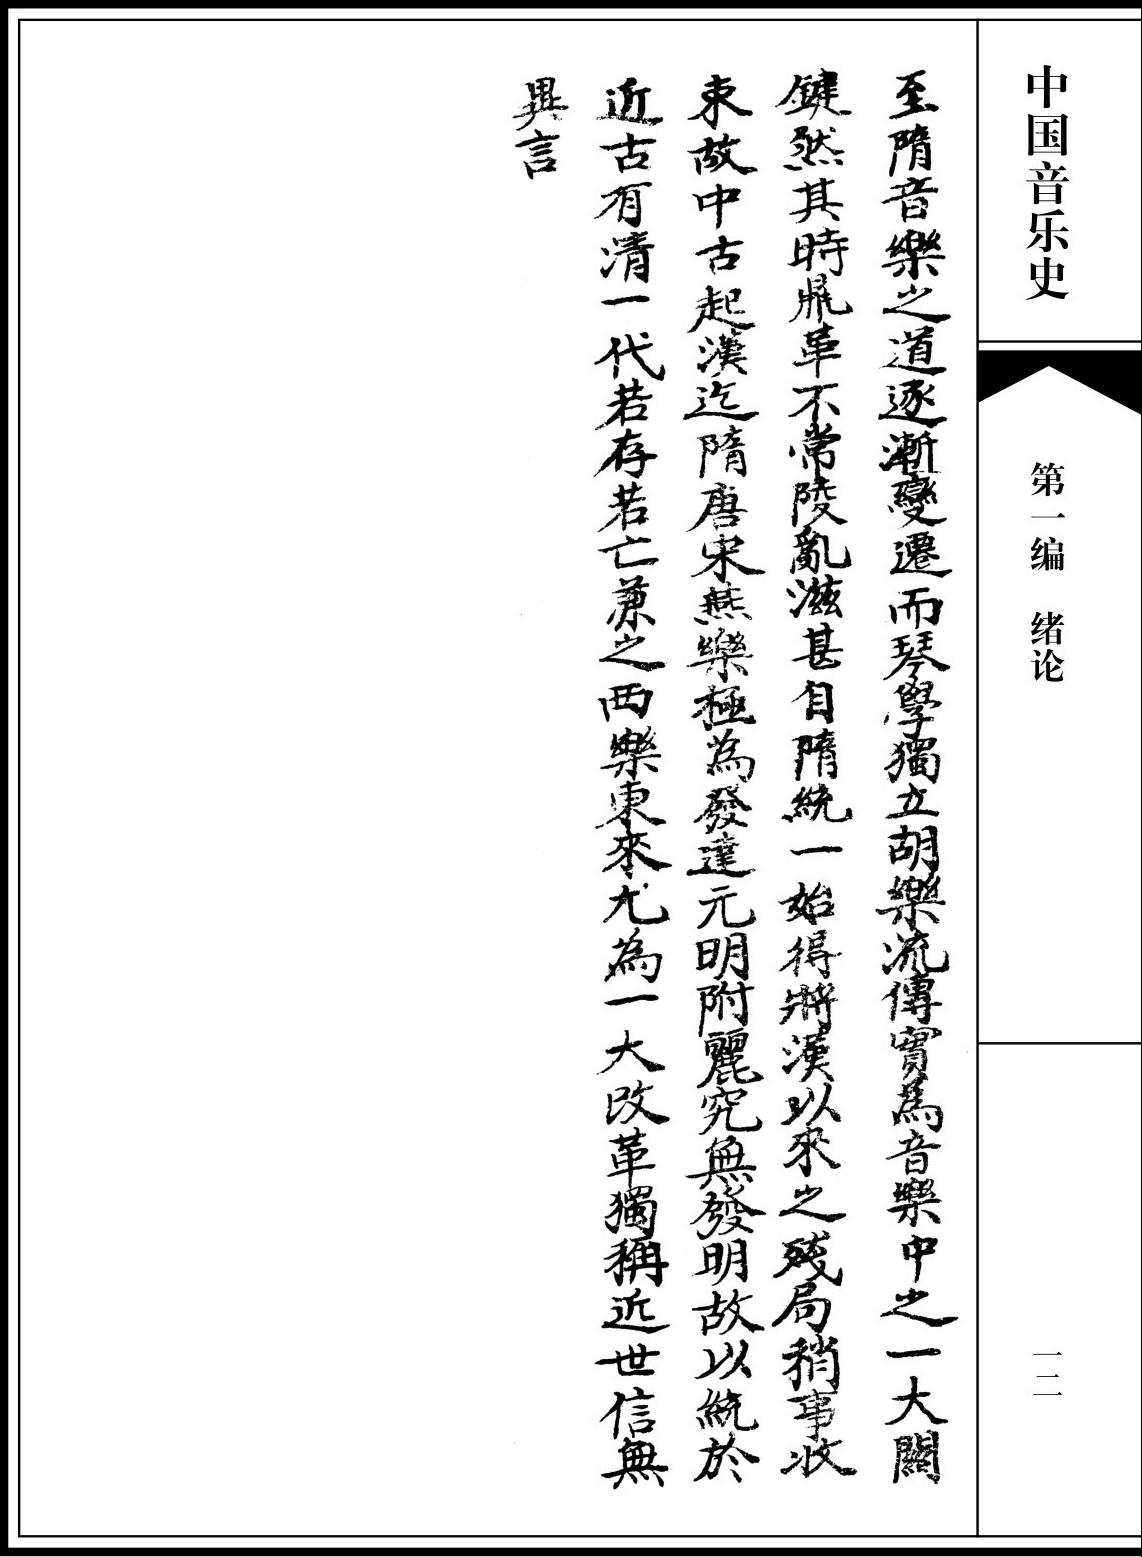 中国音乐史
第一编 绪论
一二
至隋音樂之道逐漸變遷而琴學獨立胡樂流傳實為音樂中之一大關
鍵然其時鼎革不常陵亂滋甚自隋統一始得將漢以來之残局稍事收
束故中古起漢迄隋唐宋燕樂極為發達元明附麗究無發明故以統於
近古有清一代若存若亡兼之西樂東來尤為一大改革獨稱近世信無
異言